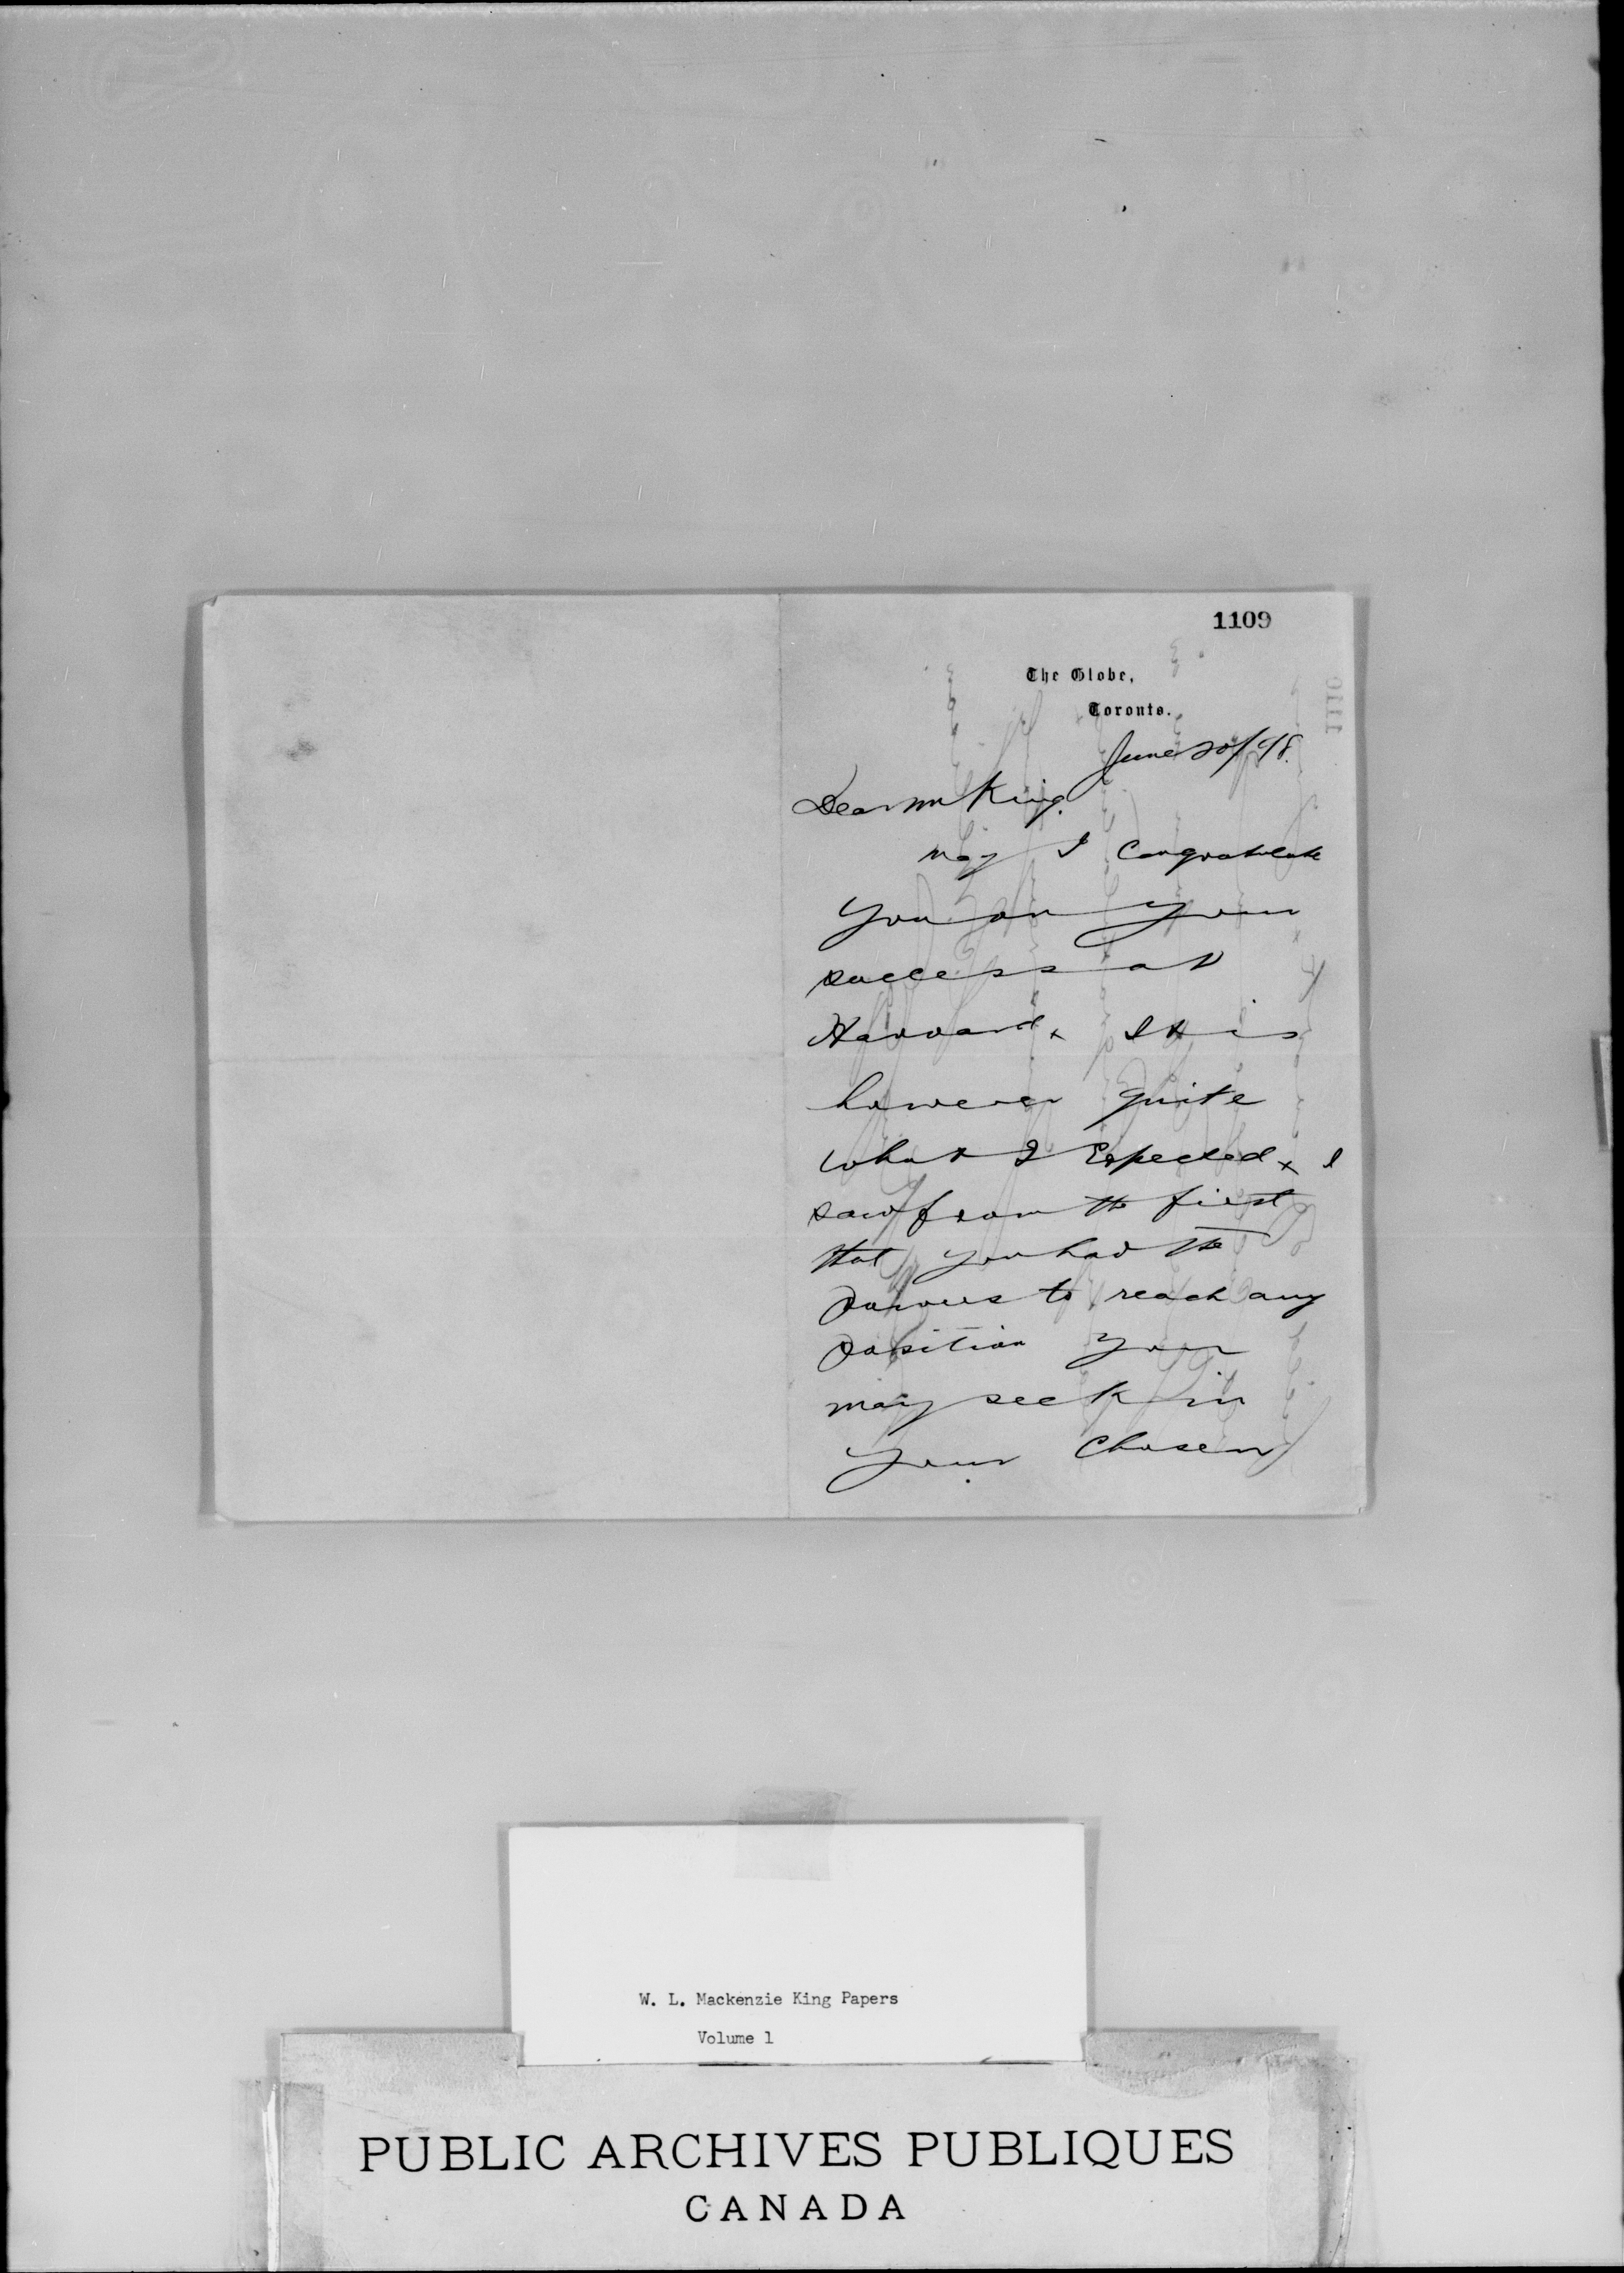 1109
The Globe,
Toronto.
June 20/98.
Dear Mr King.
May I Congratulate
you on your
success at
Harvard x It is
however quite
what I Expected x I
saw from the first
that you had the
powers to reach any
position you
may seek in
your chosen
1110
W. L. Mackenzie King Papers
Volume 1
PUBLIC ARCHIVES PUBLIQUES
CANADA